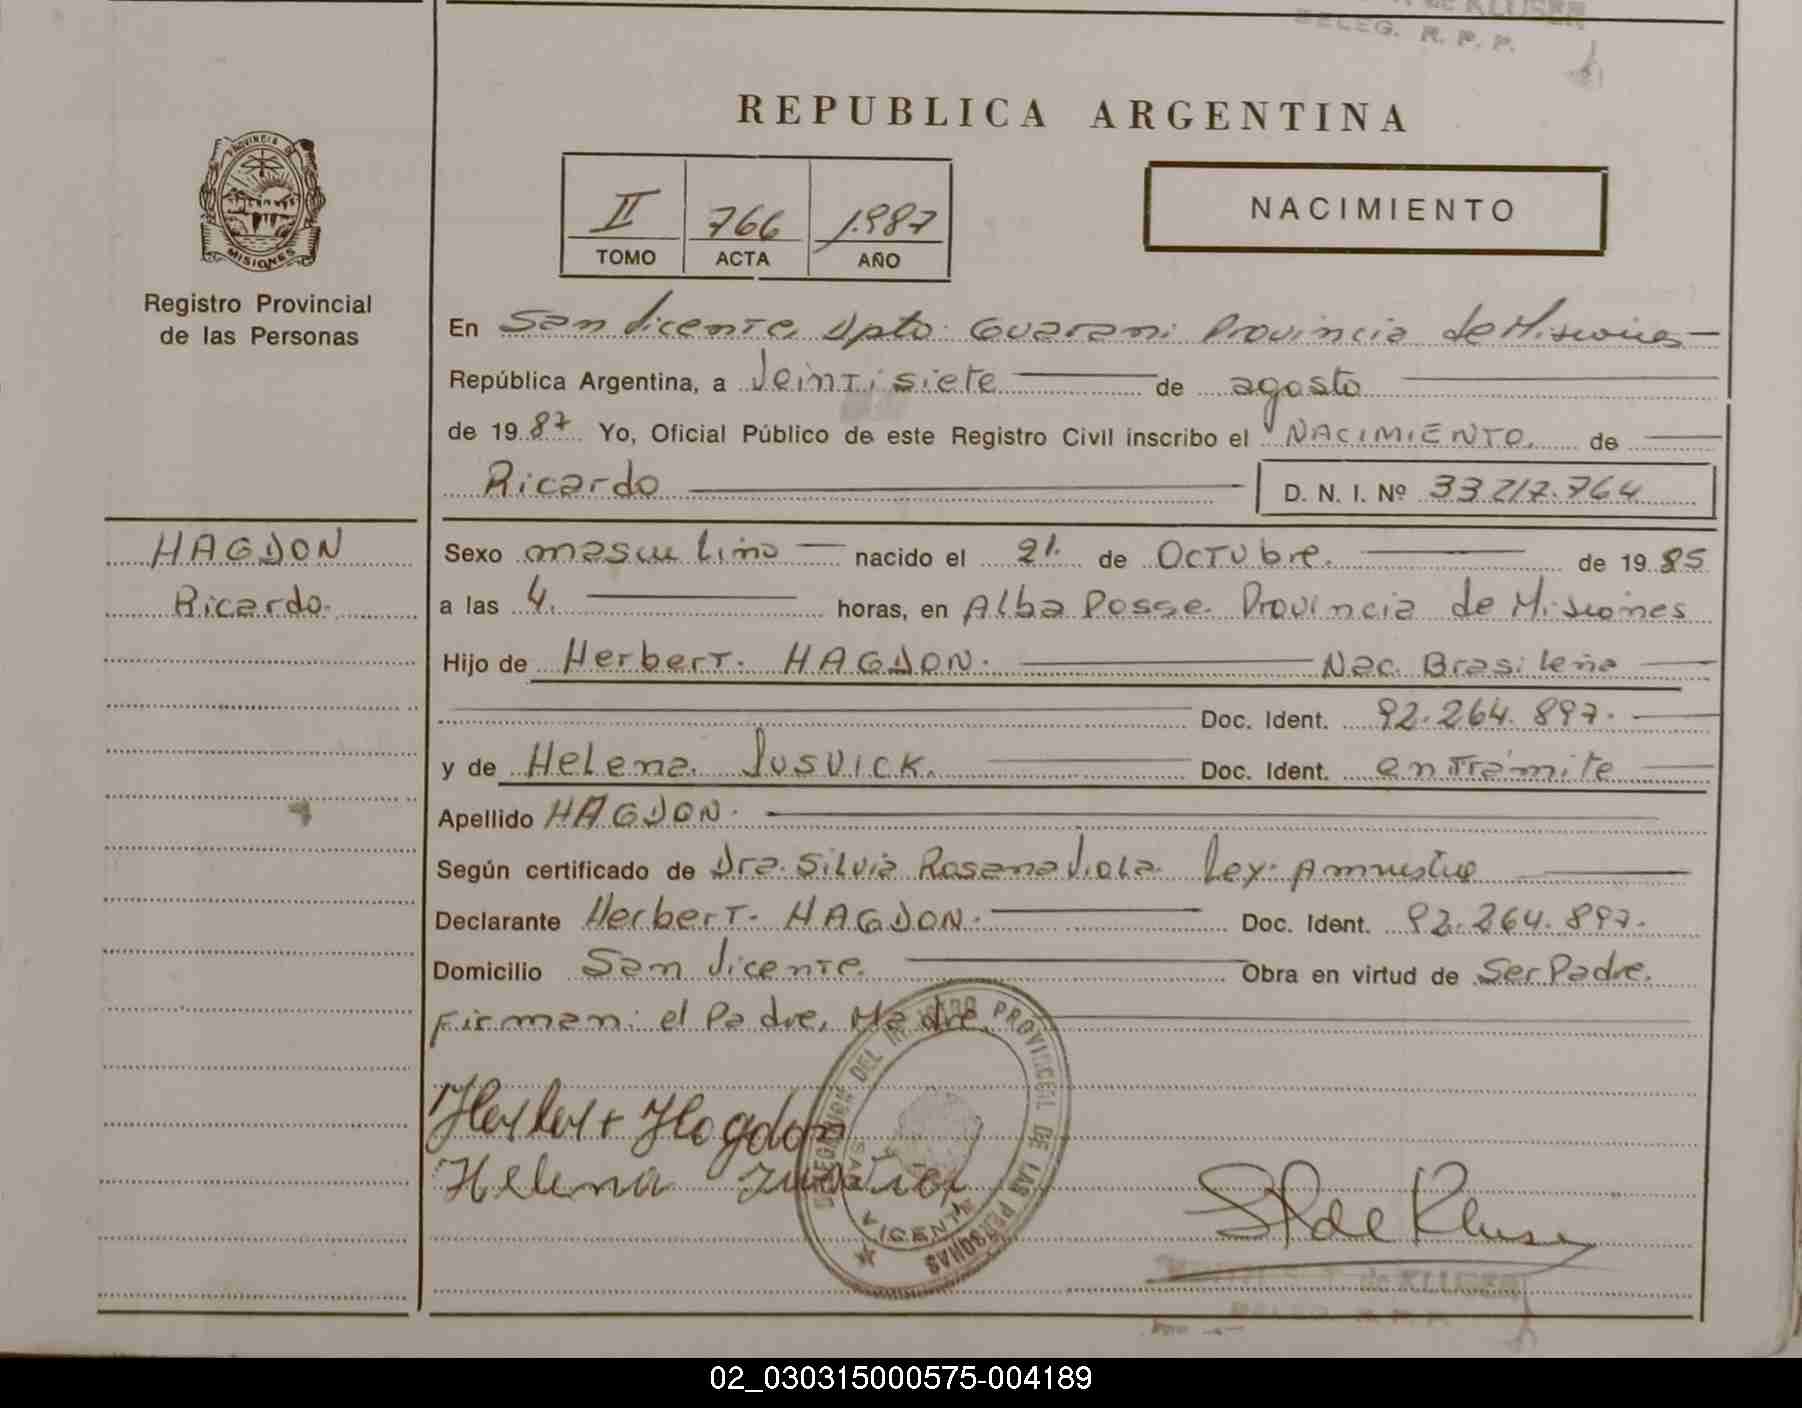 de KLUSER
DELEG. R. P. P.
REPUBLICA ARGENTINA
PROVINCIA DE
MISIONES
Registro Provincial
de las Personas
II 766 1.987
TOMO ACTA AÑO
NACIMIENTO
En San Vicente, Dpto. Guarani Provincia de Misiones
República Argentina, a Veintisiete de agosto
de 1987 Yo, Oficial Público de este Registro Civil inscribo el NACIMIENTO. de
Ricardo D. N. I. Nº 33.217.764
HAGDON
Ricardo.
Sexo masculino nacido el 21. de Octubre. de 1985
a las 4. horas, en Alba Posse. Provincia de Misiones
Hijo de Herbert. HAGDON. Nac. Brasileña
Doc. Ident. 92.264.897.
y de Helena. JUSVICK. Doc. Ident. en Trámite
Apellido HAGDON.
Según certificado de Dra. Silvia Rosana Viola. Ley. Amnistia
Declarante Herbert. HAGDON. Doc. Ident. 92.264.897.
Domicilio San Vicente. Obra en virtud de Ser Padre.
Firman: el Padre, Madre.
Herbert Hagdon
Helena
DELEGACION DEL REGISTRO PROVINCIAL DE LAS PERSONAS
SAN VICENTE
de KLUSER
DELEG. R. P. P.
02_030315000575-004189